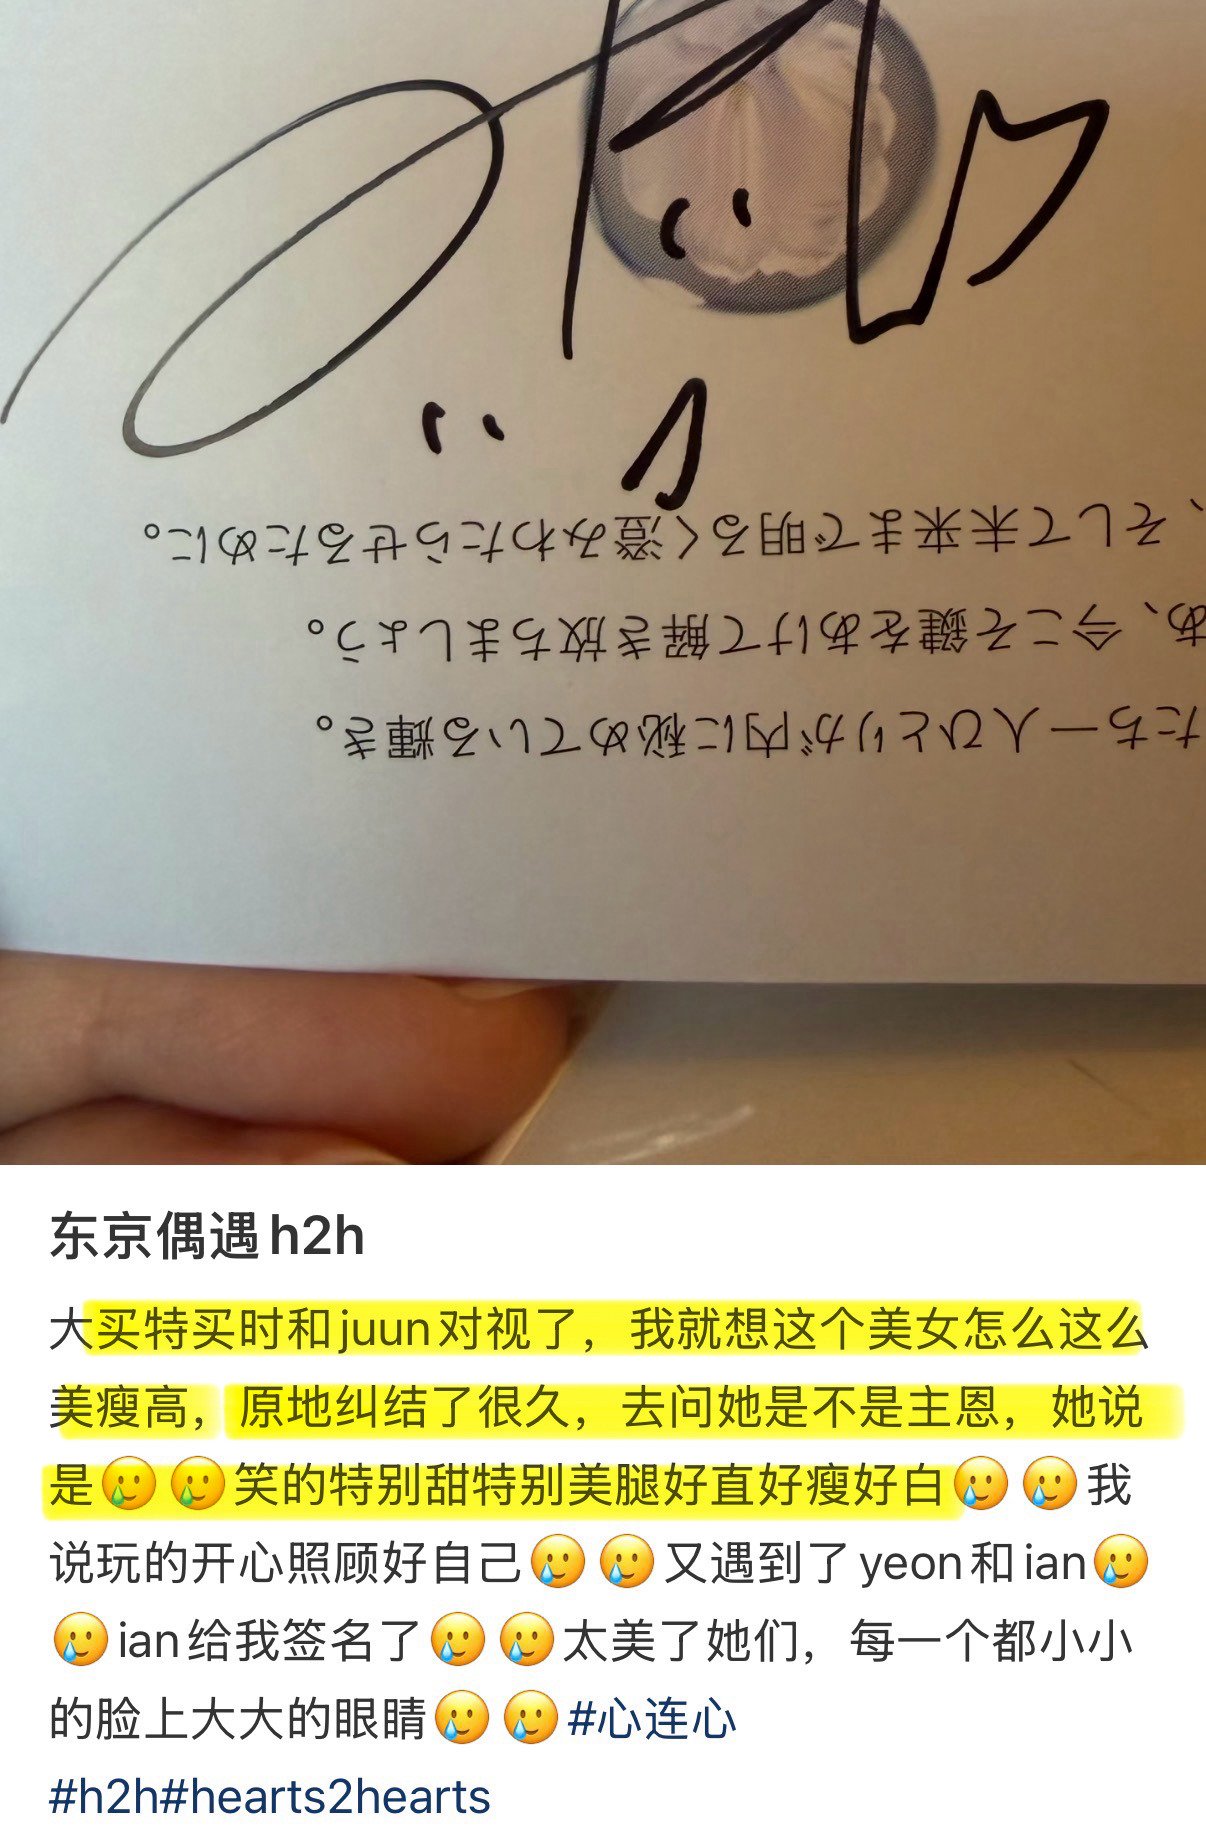 たち一人ひとりが内に秘めている輝き。
あ、今こそ鍵をあけて解き放ちましょう。
、そして未来まで明るく澄みわたらせるために。
东京偶遇h2h
大买特买时和juun对视了，我就想这个美女怎么这么
美瘦高，原地纠结了很久，去问她是不是主恩，她说
是🥲🥲笑的特别甜特别美腿好直好瘦好白🥲🥲我
说玩的开心照顾好自己🥲🥲又遇到了yeon和ian🥲
🥲ian给我签名了🥲🥲太美了她们，每一个都小小
的脸上大大的眼睛🥲🥲#心连心
#h2h#hearts2hearts